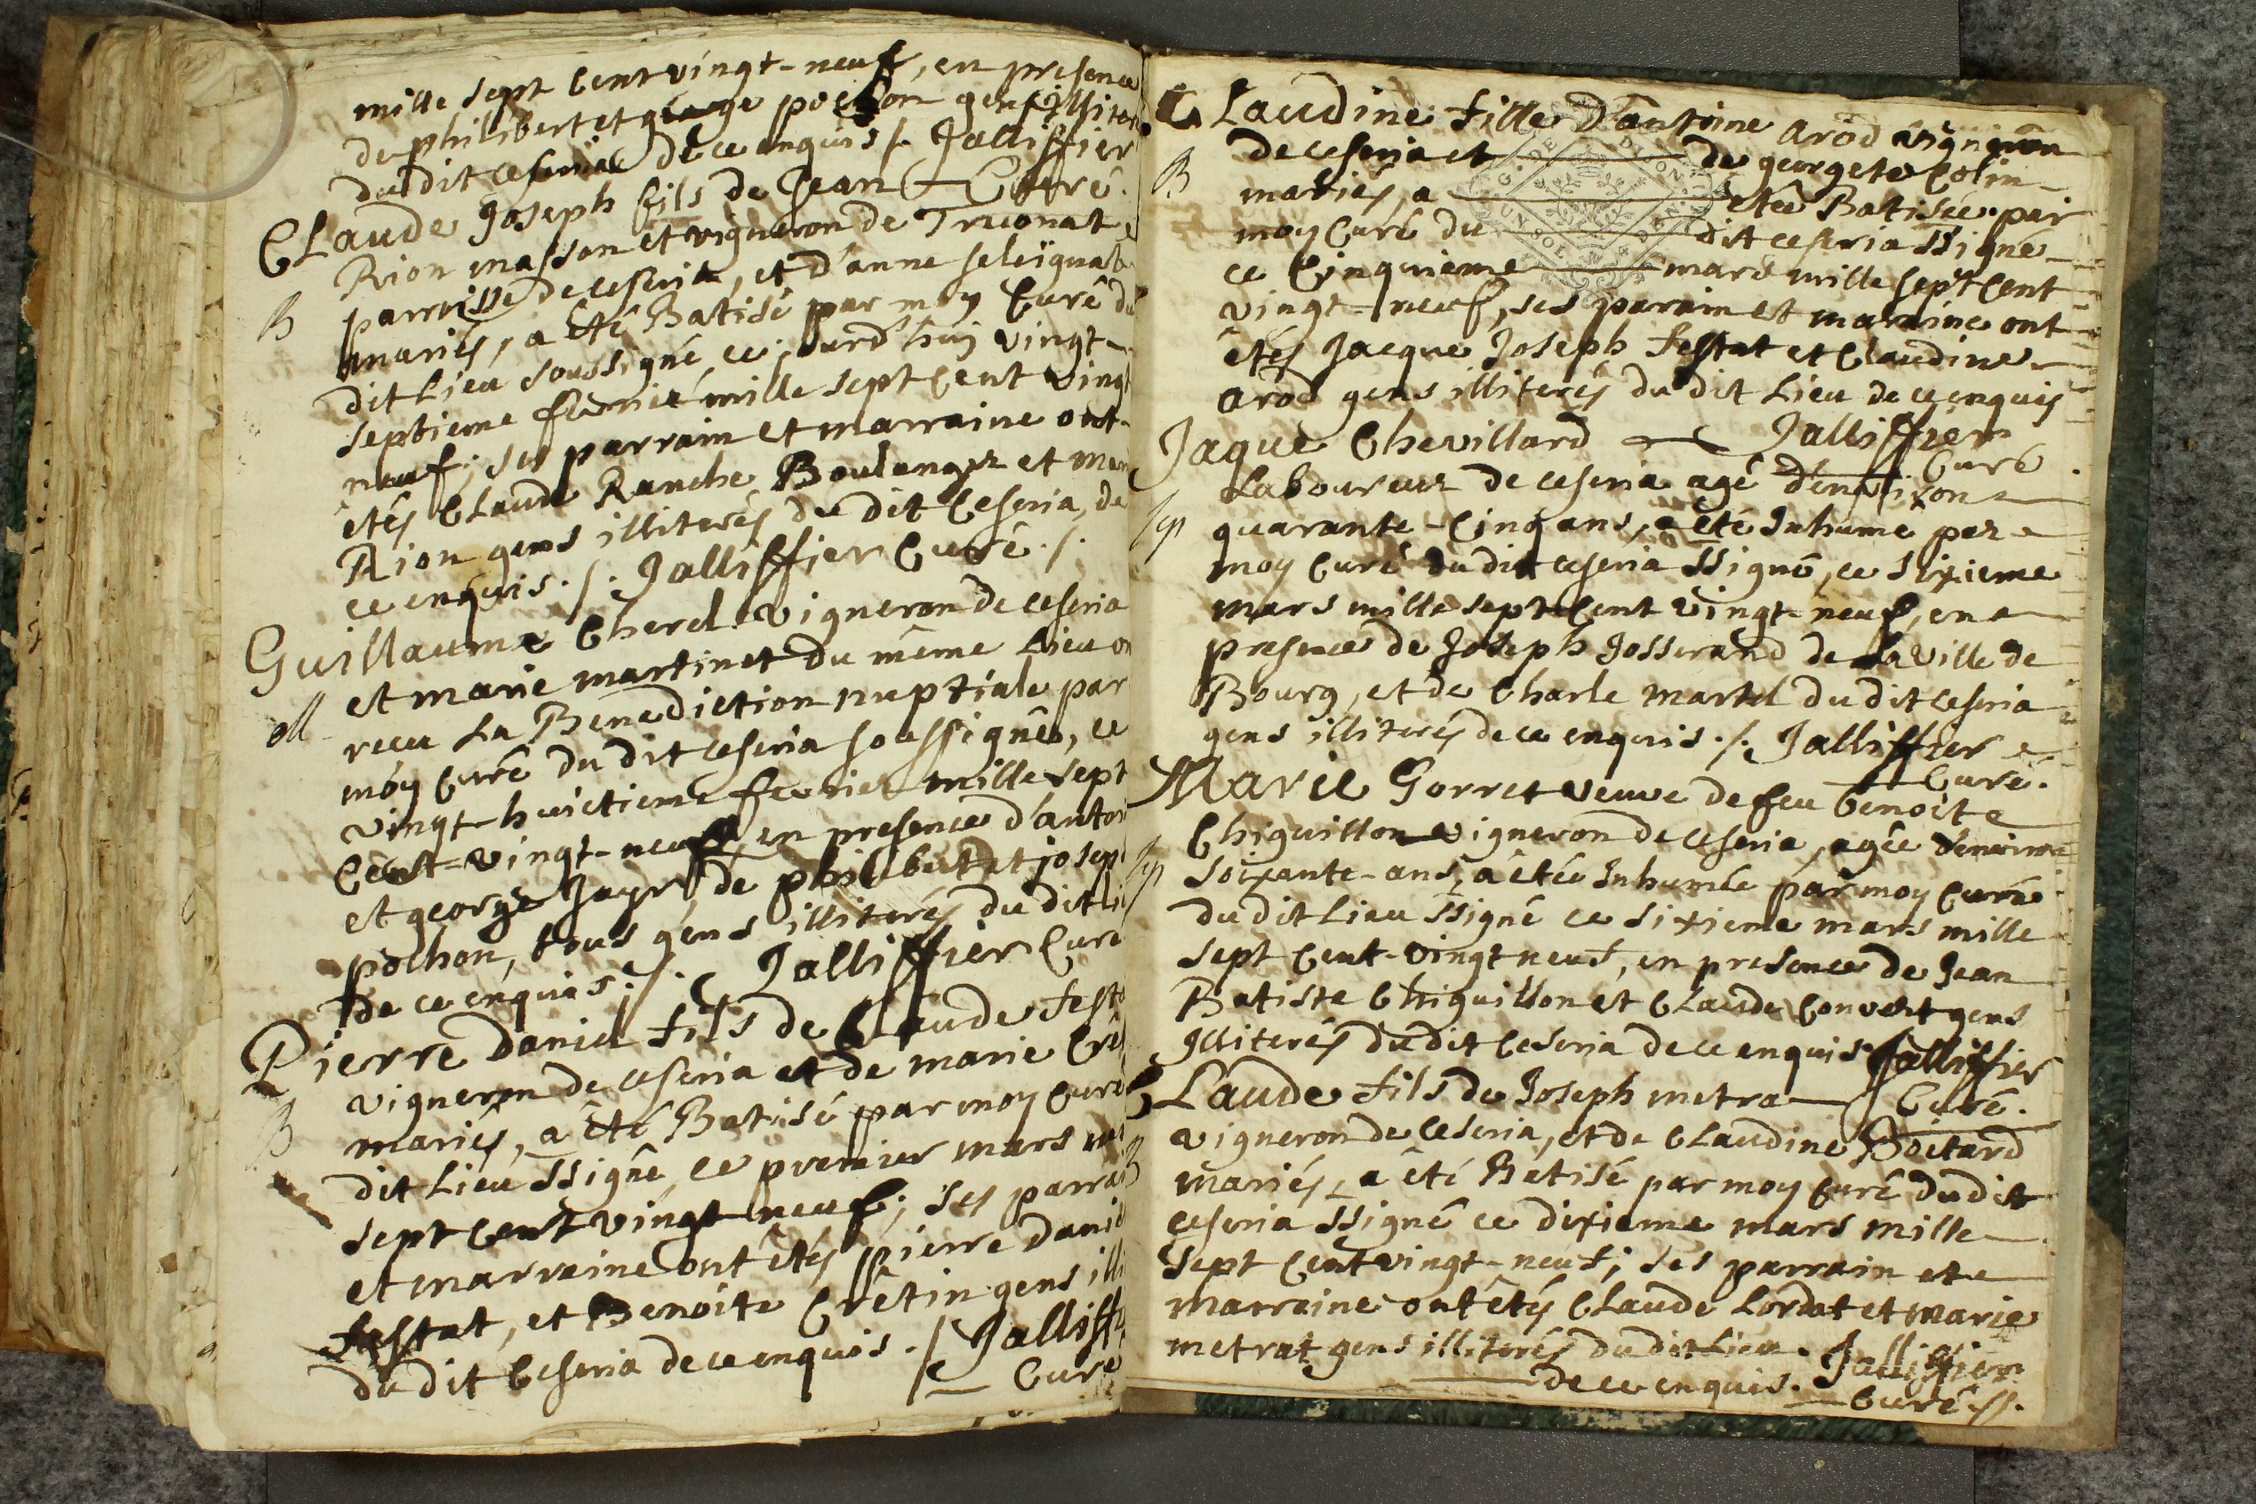 mille sept cent vingt-neuf, en presence
de philibert et george pochon gens illiter
du dit ceseria de ce enquis ./. Jalliffier
Curé.
CLaude Joseph fils de Jean
Rion masson et vigneron de
B
parroisse de ceseria, et d'anne
mariés, a êté Batisé par moy Curé du
dit Lieu soussigné, ce jourd'huy vingt-
septieme fevrier mille sept cent vingt
neuf; ses parrain et marraine ont-
êtés CLaude Ranche Boulanger et
Rion gens illiterés du dit Ceseria, de
ce enquis ./. Jalliffier Curé ./.
Guillaume Cherel vigneron de ceseria
et marie martinet du même Lieu on
M
receu La Benediction nuptiale par
moy Curé du dit ceseria soussigné, ce
vingt-huictieme fevrier mille sept
Cent-vingt-neuf, en presence d'antoi
et george Jayr, de philibert et josep
pochon, tous gens illiterés du dit li
de ce enquis ./. Jalliffier Curé
Pierre Daniel fils de CLaude fest
vigneron de ceseria et de marie Crê
B
mariés, a êté Batisé par moy Curé
dit Lieu ssigné, ce premier mars mi
sept cent vingt neuf; ses parrai
et marraine ont êtés pierre Danie
festat, et Benoite Crêtin gens illi
du dit Ceseria de ce enquis ./. Jalliff
Curé
CLaudine fille D'antoine arod vigneron
de ceseria et de georgete Colin
B
mariés, a etée Batisée par
moy Curé du dit ceseria ssigné
ce Cinquieme mars mille sept Cent
vingt-neuf, ses parain et maraine ont
êtés Jacque Joseph festat et Claudine
arod gens illiterés du dit Lieu de ce enquis
Jaque Chevillard Jalliffier
Curé.
Laboureur de ceseria agé d'environ
Sep
quarante-Cinq ans, a été Inhumé par
moy Curé du dit ceseria ssigné, ce sixieme
mars mille sept Cent vingt-neuf, en
presence de Joseph Josserand de La Ville de
Bourg, et de Charle martel du dit ceseria
gens illiterés de ce enquis ./. Jalliffier
Curé.
Marie Gorret veuve de feu Benoit
Chiguillon vigneron de ceseria, agée d'environ
Sep
soixante-ans, a êtée Inhumée par moy Curé
du dit Lieu ssigné ce sixieme mars mille
sept Cent-vingt neuf, en presence de Jean
Batiste Chiguillon et CLaude Convert gens
Illiterés du dit Ceseria de ce enquis Jalliffier
Curé.
CLaude fils de Joseph metra
vigneron de Ceseria, et de CLaudine Boitard
B
mariés, a êté Batisé par moy Curé du dit
ceseria ssigné ce dixieme mars mille
sept Cent vingt-neuf; ses parrain et
marraine ont êtés CLaude Lordat et marie
metrat gens illiterés du dit Lieu. Jalliffier
de ce enquis. Curé ./.